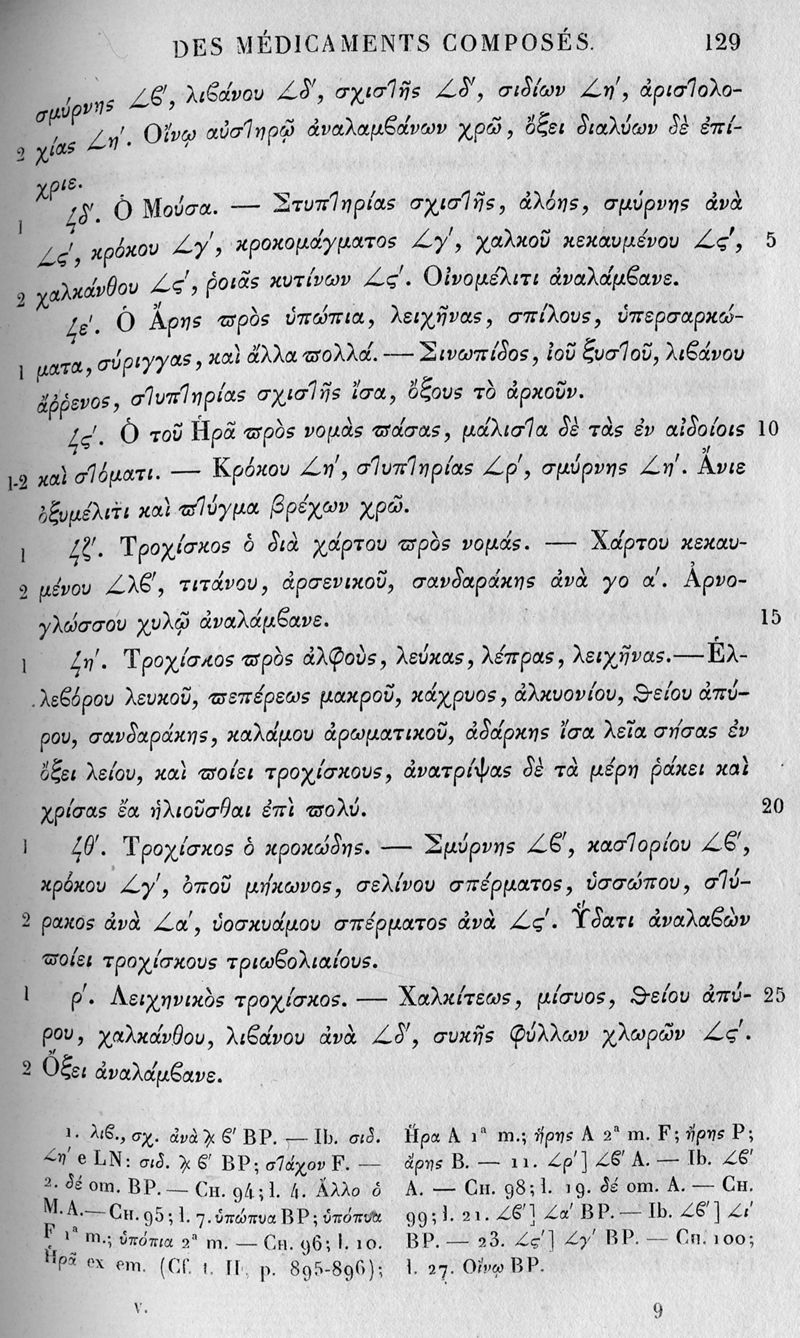 DES MÉDICAMENTS COMPOSÉS. 129
σμύρνης ∠β', λιβάνου ∠δ', σχιστῆς ∠δ', σιδίων ∠η', ἀριστολο-
2 χίας ∠η'. Οἴνῳ αὐστηρῷ ἀναλαμβάνων χρῶ, ὄξει διαλύων δὲ ἐπί-
χριε.
1 ϟδ'. Ὁ Μούσα. — Στυπτηρίας σχιστῆς, ἀλόης, σμύρνης ἀνὰ
∠ϛ', κρόκου ∠γ', κροκομάγματος ∠γ', χαλκοῦ κεκαυμένου ∠ϛ', 5
2 χαλκάνθου ∠ϛ', ῥοιᾶς κυτίνων ∠ϛ'. Οἰνομέλιτι ἀναλάμβανε.
ϟε'. Ὁ Ἄρης πρὸς ὑπώπια, λειχῆνας, σπίλους, ὑπερσαρκώ-
1 ματα, σύριγγας, καὶ ἄλλα πολλά. — Σινωπίδος, ἰοῦ ξυστοῦ, λιβάνου
ἄῤῥενος, στυπτηρίας σχιστῆς ἴσα, ὄξους τὸ ἀρκοῦν.
ϟϛ'. Ὁ τοῦ Ἡρᾶ πρὸς νομὰς πάσας, μάλιστα δὲ τὰς ἐν αἰδοίοις 10
1-2 καὶ στόματι. — Κρόκου ∠η', στυπτηρίας ∠ρ', σμύρνης ∠η'. Ἄνιε
ὀξυμέλιτι καὶ πτύγμα βρέχων χρῶ.
1 ϟζ'. Τροχίσκος ὁ διὰ χάρτου πρὸς νομάς. — Χάρτου κεκαυ-
2 μένου ∠λβ', τιτάνου, ἀρσενικοῦ, σανδαράκης ἀνὰ γο α'. Ἀρνο-
γλώσσου χυλῷ ἀναλάμβανε. 15
1 ϟη'. Τροχίσκος πρὸς ἀλφοὺς, λεύκας, λέπρας, λειχῆνας.—Ἑλ-
λεβόρου λευκοῦ, πεπέρεως μακροῦ, κάχρυος, ἀλκυονίου, θείου ἀπύ-
ρου, σανδαράκης, καλάμου ἀρωματικοῦ, ἀδάρκης ἴσα λεῖα σήσας ἐν
ὄξει λείου, καὶ ποίει τροχίσκους, ἀνατρίψας δὲ τὰ μέρη ῥάκει καὶ
χρίσας ἔα ἡλιοῦσθαι ἐπὶ πολύ. 20
1 ϟθ'. Τροχίσκος ὁ κροκώδης. — Σμύρνης ∠β', καστορίου ∠β',
κρόκου ∠γ', ὀποῦ μήκωνος, σελίνου σπέρματος, ὑσσώπου, στύ-
2 ρακος ἀνὰ ∠α', ὑοσκυάμου σπέρματος ἀνὰ ∠ϛ'. Ὕδατι ἀναλαβὼν
ποίει τροχίσκους τριωβολιαίους.
1 ρ'. Λειχηνικὸς τροχίσκος. — Χαλκίτεως, μίσυος, θείου ἀπύ- 25
ρου, χαλκάνθου, λιβάνου ἀνὰ ∠δ', συκῆς φύλλων χλωρῶν ∠ϛ'.
2 Ὄξει ἀναλάμβανε.
1. λιβ., σχ. ἀνὰ ⚹ β' BP. — Ib. σιδ.
∠η' e LN: σιδ. ⚹ β' BP; στάχον F. —
2. δέ om. BP. — CH. 94; l. 4. Ἄλλο ὁ
M. A. — CH. 95; l. 7. ὑπώπυα BP; ὑπόπυα
F 1ª m.; ὑπόπια 2ª m. — CH. 96; l. 10.
Ἡρᾶ ex em. (Cf. t. II, p. 895-896);
Ἥρα A 1ª m.; ἥρης A 2ª m. F; ἤρης P;
ἄρης B. — 11. ∠ρ'] ∠β' A. — Ib. ∠β'
A. — CH. 98; l. 19. δέ om. A. — CH.
99; l. 21. ∠β'] ∠α' BP. — Ib. ∠β'] ∠ι'
BP. — 23. ∠ϛ'] ∠γ' BP. — CH. 100;
l. 27. Οἴνῳ BP.
V. 9